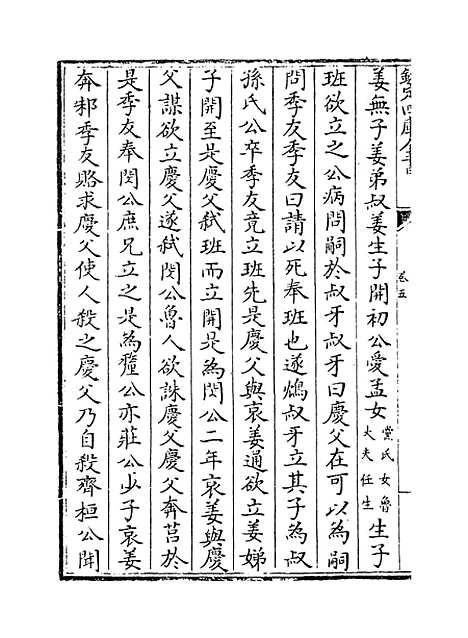 欽定四庫全書
卷五
姜無子姜弟叔姜生子開初公愛孟女黨氏女魯大夫任生生子
班欲立之公病問嗣於叔牙叔牙曰慶父在可以為嗣
問季友季友曰請以死奉班也遂鴆叔牙立其子為叔
孫氏公卒季友竟立班先是慶父與哀姜通欲立姜娣
子開至是慶父弑班而立開是為閔公二年哀姜與慶
父謀欲立慶父遂弑閔公魯人欲誅慶父慶父奔莒於
是季友奉閔公庶兄立之是為釐公亦莊公少子哀姜
奔邾季友賂求慶父使人殺之慶父乃自殺齊桓公聞